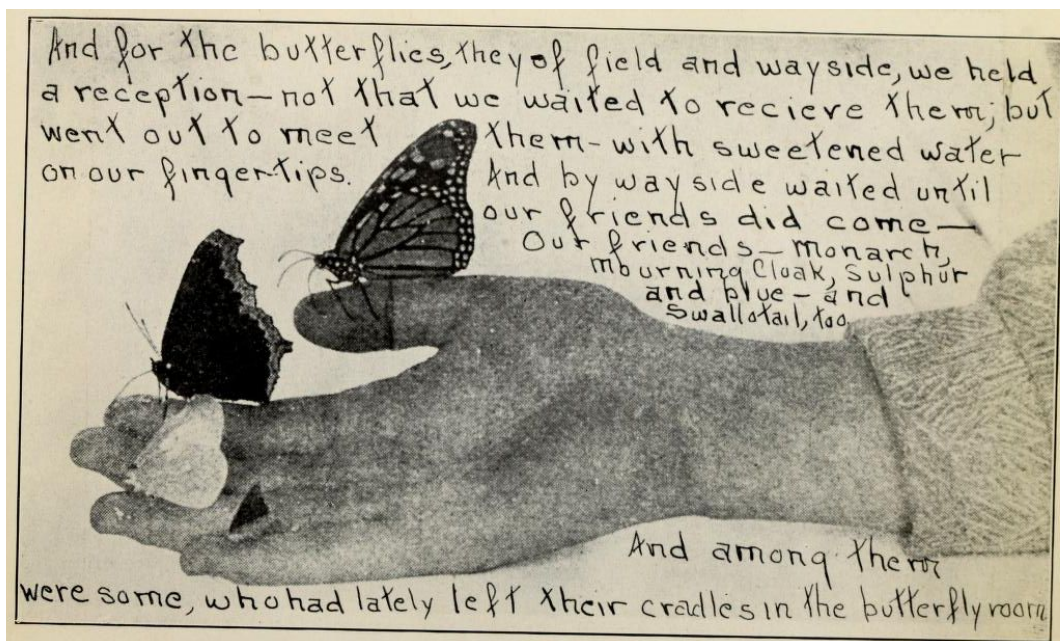 And for the butterflies, they of field and wayside, we held
a reception—not that we waited to recieve them; but
went out to meet them—with sweetened water
on our fingertips. And by wayside waited until
our friends did come—
Our friends—monarch,
mourning Cloak, Sulphur
and blue—and
Swallotail, too.
And among them
were some, who had lately left their cradles in the butterfly room